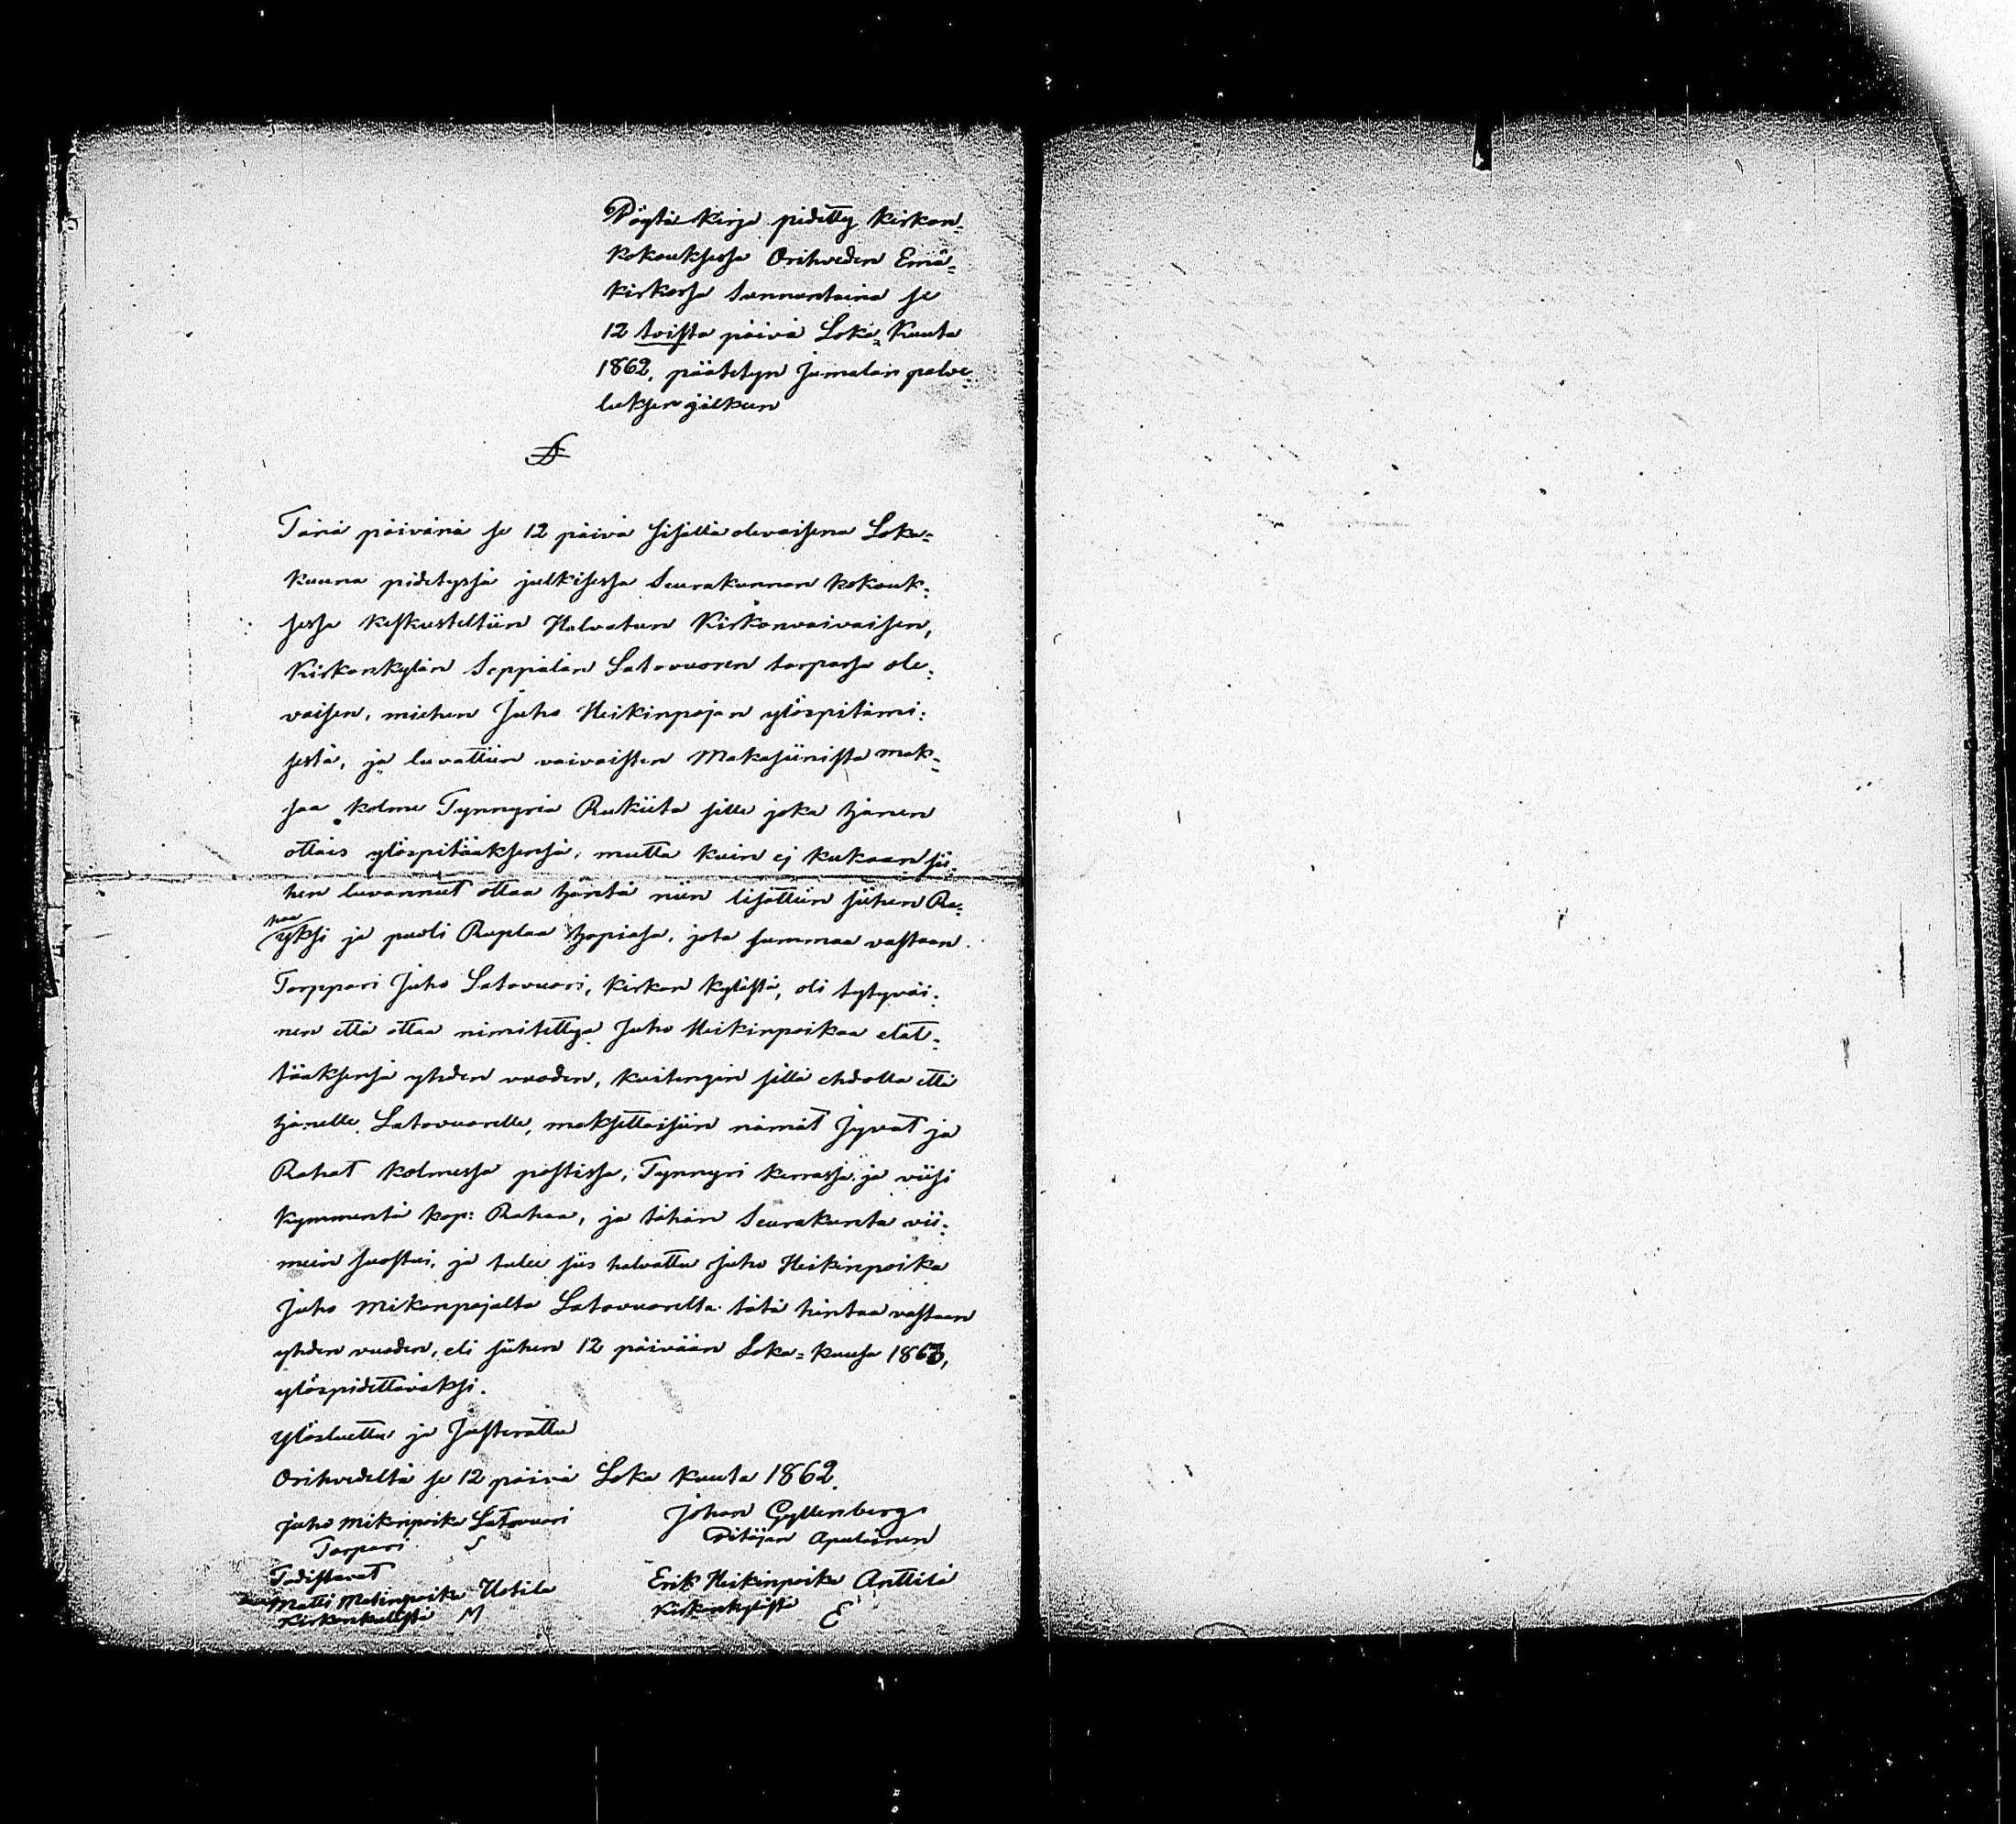 Pöytä kirja pidetty kirkon-
kokouksessa Orihveden Emä-
kirkossa Sunnuntaina se
12 toista päivä Loka-Kuuta
1862, päätetyn Jumalan palve-
luksen jälkeen
§
Tänä päivänä se 12 päivä sisällä olevaisena Loka-
kuuna pidetyssä julkisessa Seurakunnan kokouk-
sessa keskusteltiin Halvatun Kirkonvaivaisen,
Kirkonkylän Seppälän Latovuoren torpassa ole-
vaisen, miehen Juho Heikinpojan ylöspitämi-
sestä, ja luvattiin vaivaisten Makasiinista mak-
saa kolme Tynnyriä Rukiita sille joka hänen
ottais ylöspitääksensä, mutta kuin ej kukaan sii-
hen luvannut ottaa häntä niin lisättiin siihen Ra-
haa
yksi ja puoli Ruplaa hopiasa, jota summaa vastaan
Torppari Juho Latovuori, kirkon kylästä, oli tytyväi-
nen että ottaa nimitettyä Juho Heikinpoikaa elät-
tääksensä yhden vuoden, kuitengin sillä ehdolla että
hänelle Latovuorelle, maksettaisiin nämät Jyvät ja
Rahat kolmessa postissa, Tynnyri kerrassa ja viisi
kymmentä kop: Rahaa, ja tähän Seurakunta vii-
mein suostui, ja tulee siis halvattu Juho Heikinpoika
Juho Mikonpojalta Latovuorelta tätä hintaa vastaan
yhden vuoden, eli siihen 12 päivään Loka-kuusa 1863,
ylöspidettäväksi.
Ylösluettu ja Justerattu
Orihvedeltä se 12 päivä Loka kuuta 1862.
Juho Mikonpoika Latovuori
Torpari
Johan Gyllenberg
Pitäjän Apulainen
Todistavat
Matti Matinpoika Uotila
Kirkonkylästä M
Erik Heikinpoika Anttila
Kirkonkylästä E